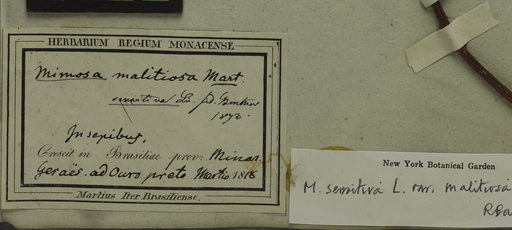 HERBARIUM REGIUM MONACENSE
Mimosa malitiosa Mart.
sensitiva Lin.
In sepibus,
Crescit in Brasiliae prov: Minas
Geraës. ad Ouro preto Martio 1818
Martius Iter Brasiliense.
New York Botanical Garden
M. sensitiva L. var. malitiosa